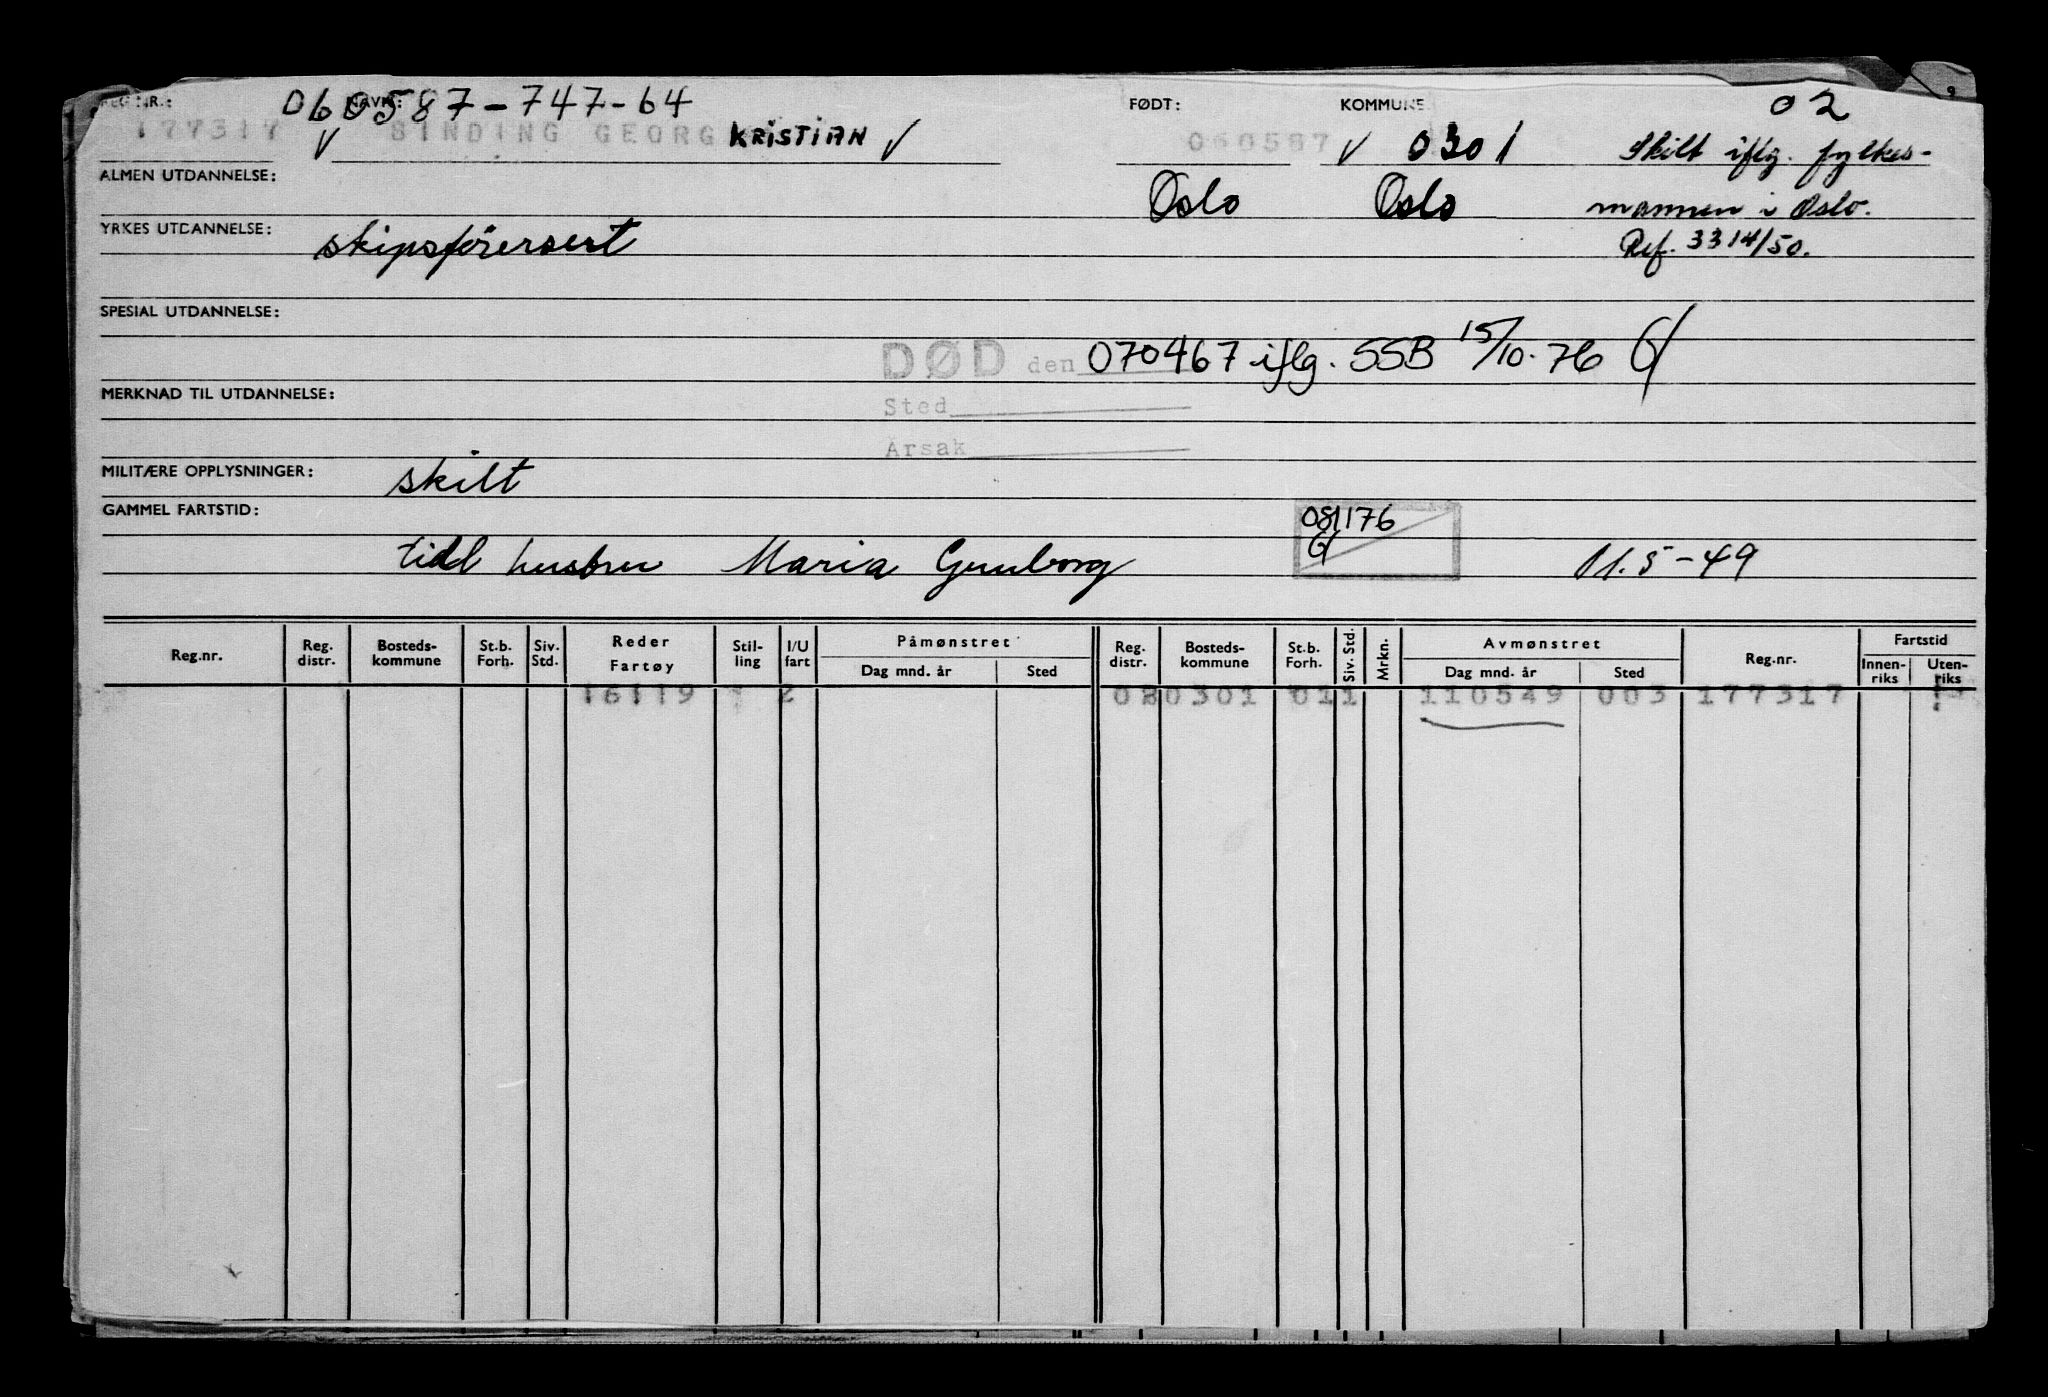 REG. NR.: NAVN: 060587-747-64 FØDT: KOMMUNE 02
177317 √ SINDING GEORG KRISTIAN √ 060587 √ 0301 Skilt iflg. fylkes-
ALMEN UTDANNELSE: Oslo Oslo mannen i Oslo.
YRKES UTDANNELSE: skipsførersert Ref. 3314/50.
SPESIAL UTDANNELSE:
DØD den 070467 iflg. SSB 15/10-76
MERKNAD TIL UTDANNELSE:
Sted
Årsak
MILITÆRE OPPLYSNINGER: skilt
GAMMEL FARTSTID: 081176
tidl hustru Maria Gunborg 11.5-49
Reg.nr. Reg. distr. Bosteds-kommune St.b. Forh. Siv. Std. Reder Fartøy Stil-ling I/U fart Påmønstret Dag mnd. år Sted Reg. distr. Bosteds-kommune St.b. Forh. Siv. Std. Mrkn. Avmønstret Dag mnd. år Sted Reg.nr. Fartstid Innen-riks Uten-riks
16119 2 020301 011 110549 003 177317